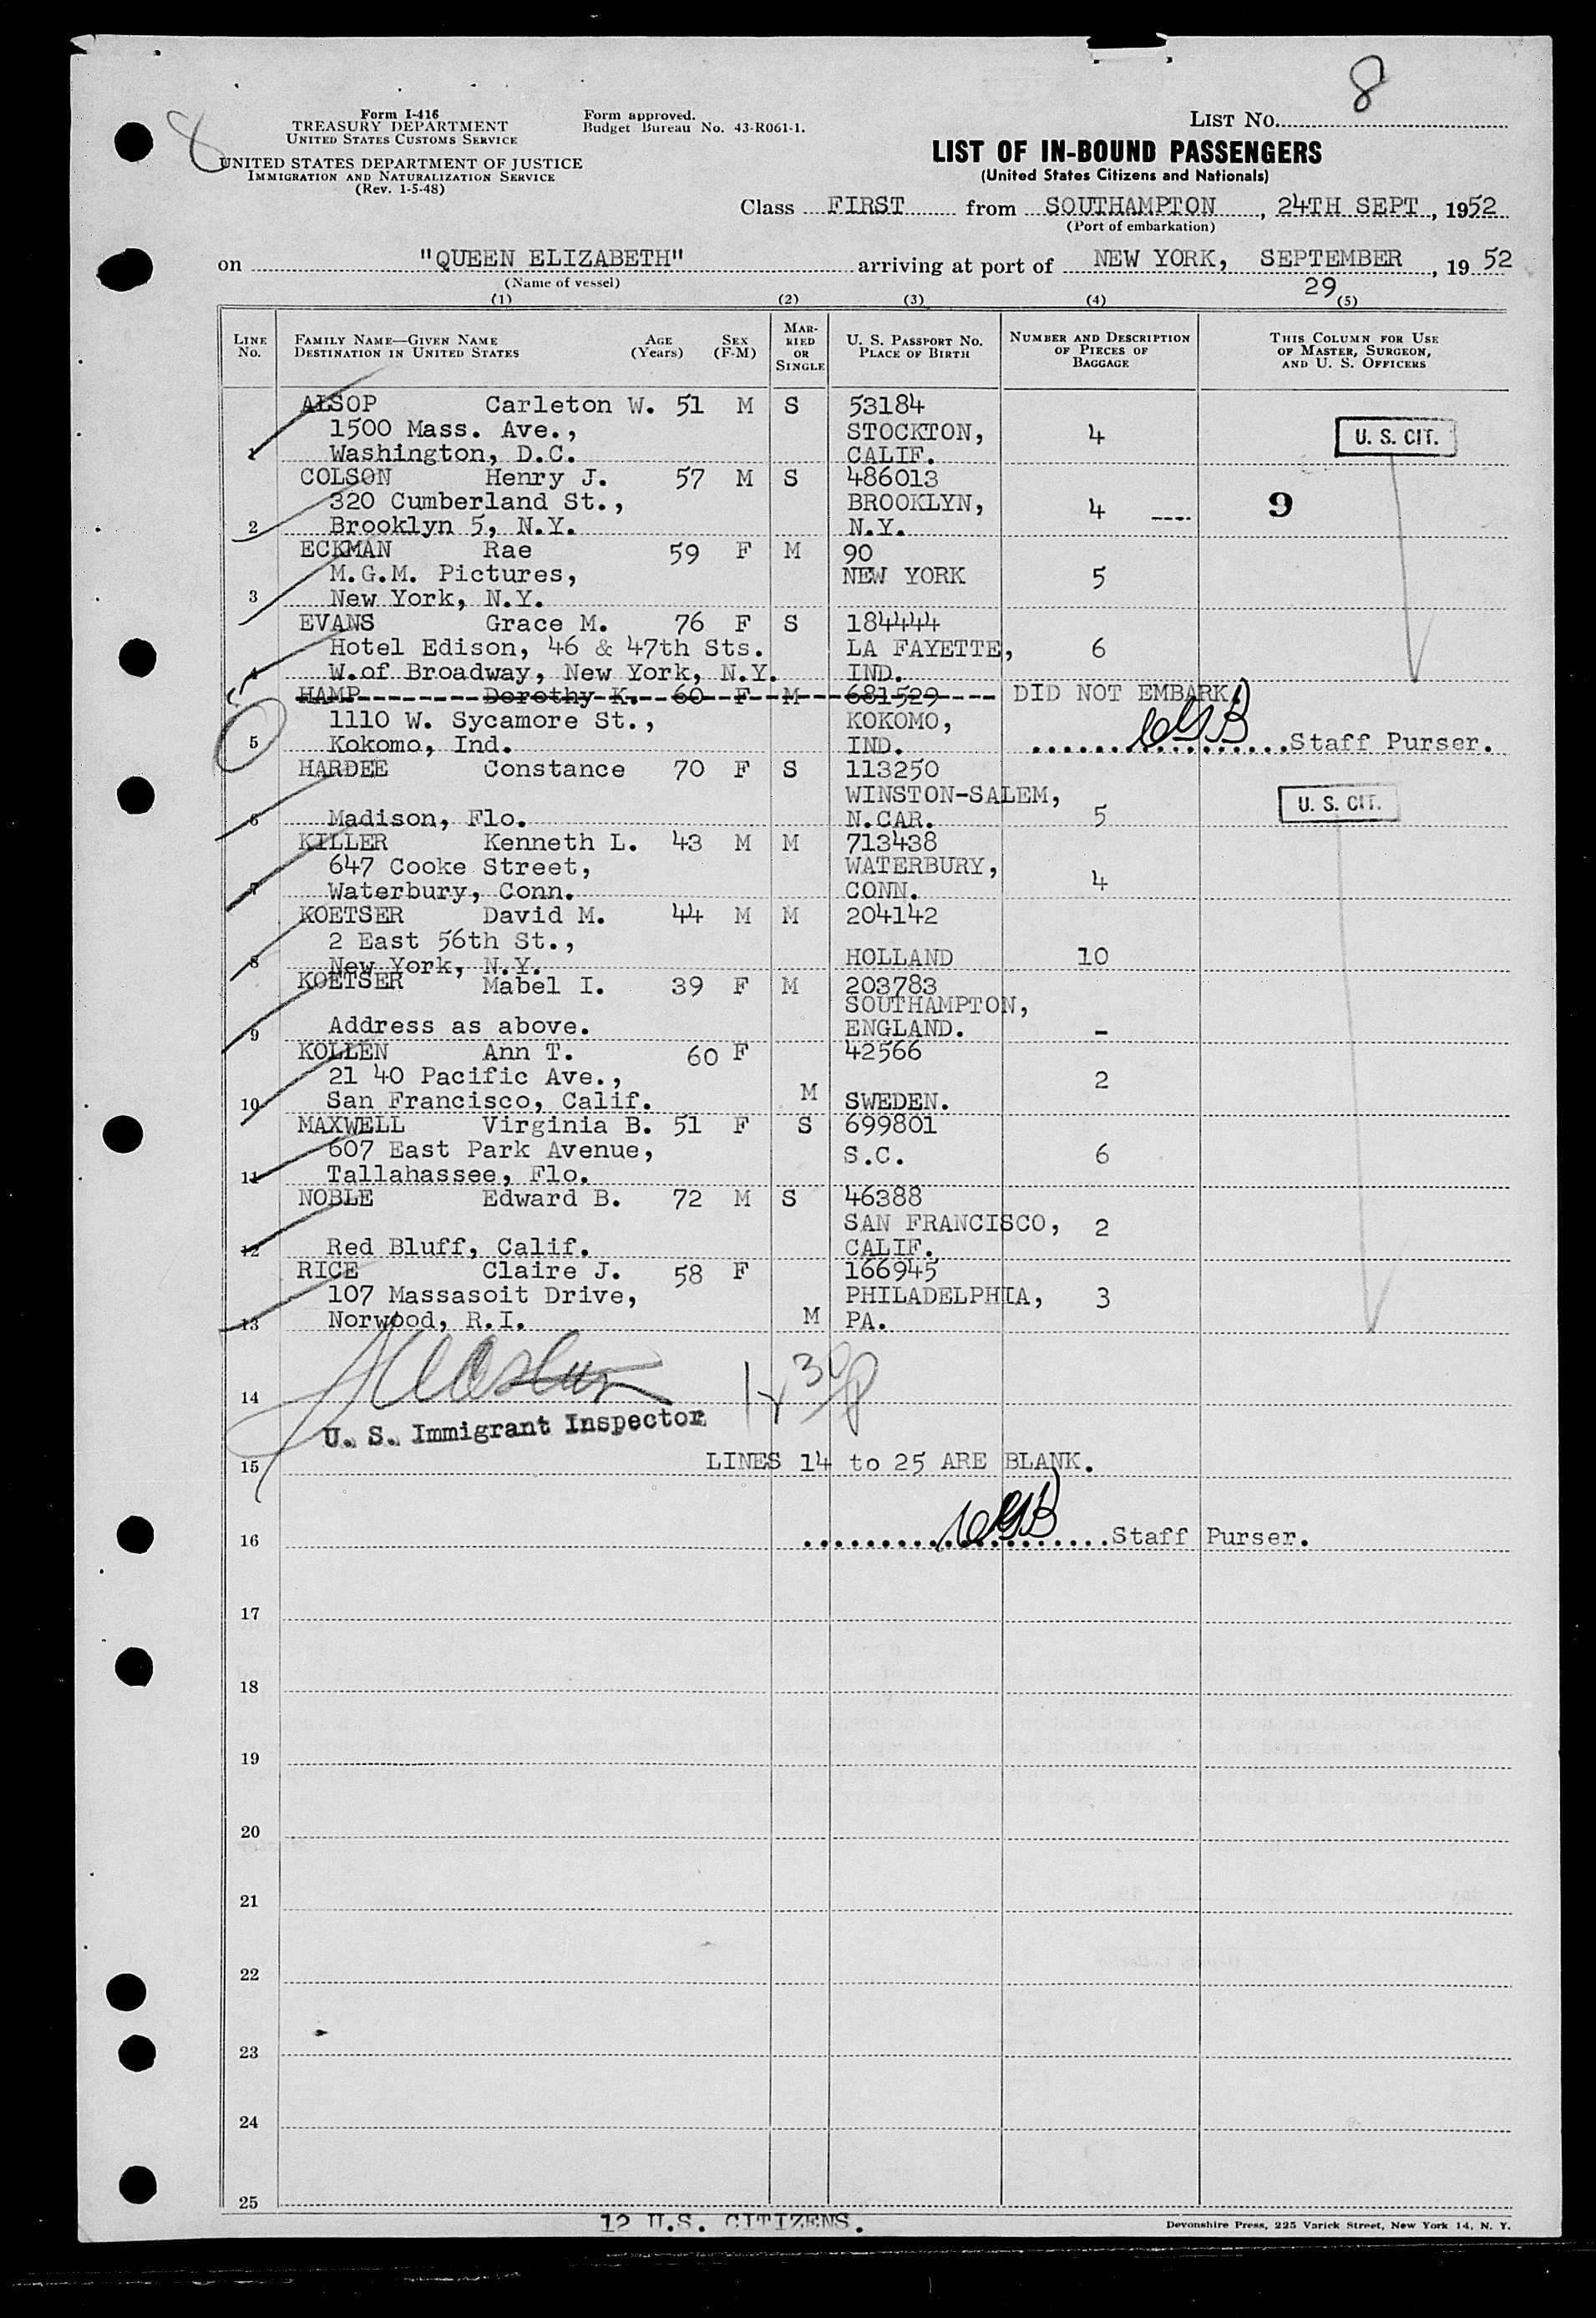 8
8
Form I-416
TREASURY DEPARTMENT
UNITED STATES CUSTOMS SERVICE
UNITED STATES DEPARTMENT OF JUSTICE
IMMIGRATION AND NATURALIZATION SERVICE
(Rev. 1-5-48)
Form approved.
Budget Bureau No. 43-R061-1.
LIST NO.
LIST OF IN-BOUND PASSENGERS
(United States Citizens and Nationals)
Class FIRST from SOUTHAMPTON, 24TH SEPT, 1952
(Port of embarkation)
on "QUEEN ELIZABETH" arriving at port of NEW YORK, SEPTEMBER 29, 1952
(Name of vessel)
(1) (2) (3) (4) (5)
LINE NO.
FAMILY NAME—GIVEN NAME
DESTINATION IN UNITED STATES
AGE (Years)
SEX (F-M)
MARRIED OR SINGLE
U. S. PASSPORT NO.
PLACE OF BIRTH
NUMBER AND DESCRIPTION OF PIECES OF BAGGAGE
THIS COLUMN FOR USE OF MASTER, SURGEON, AND U. S. OFFICERS
ALSOP Carleton W. 51 M S 53184
1500 Mass. Ave., STOCKTON, 4 U. S. CIT.
1 Washington, D.C. CALIF.
COLSON Henry J. 57 M S 486013
320 Cumberland St., BROOKLYN, 4 ---- 9
2 Brooklyn 5, N.Y. N.Y.
ECKMAN Rae 59 F M 90
M.G.M. Pictures, NEW YORK 5
3 New York, N.Y.
EVANS Grace M. 76 F S 184444
Hotel Edison, 46 & 47th Sts. LA FAYETTE, 6
4 W.of Broadway, New York, N.Y. IND.
HAMP Dorothy K. 60 F M 681529 DID NOT EMBARK.
1110 W. Sycamore St., KOKOMO,
5 Kokomo, Ind. IND. Staff Purser.
HARDEE Constance 70 F S 113250
WINSTON-SALEM, U. S. CIT.
6 Madison, Flo. N.CAR. 5
KILLER Kenneth L. 43 M M 713438
647 Cooke Street, WATERBURY,
7 Waterbury, Conn. CONN. 4
KOETSER David M. 44 M M 204142
2 East 56th St.,
8 New York, N.Y. HOLLAND 10
KOETSER Mabel I. 39 F M 203783
SOUTHAMPTON,
9 Address as above. ENGLAND. -
KOLLEN Ann T. 60 F 42566
21 40 Pacific Ave., 2
10 San Francisco, Calif. M SWEDEN.
MAXWELL Virginia B. 51 F S 699801
607 East Park Avenue, S.C. 6
11 Tallahassee, Flo.
NOBLE Edward B. 72 M S 46388
SAN FRANCISCO, 2
12 Red Bluff, Calif. CALIF.
RICE Claire J. 58 F 166945
107 Massasoit Drive, PHILADELPHIA, 3
13 Norwood, R.I. M PA.
14
U. S. Immigrant Inspector
15 LINES 14 to 25 ARE BLANK.
16 Staff Purser.
17
18
19
20
21
22
23
24
25
12 U.S. CITIZENS.
Devonshire Press, 225 Varick Street, New York 14, N. Y.